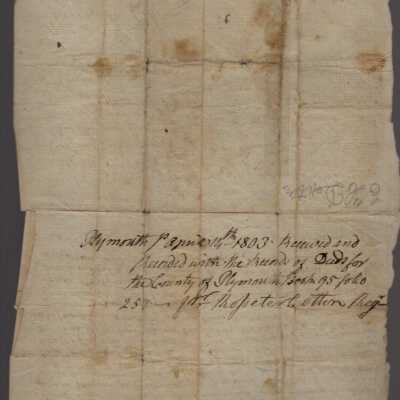 Plymouth Ss April 16th 1803. Received and
Recorded with the Records of Deeds for
the County of Plymouth Book 95 folio
25 Pr. Rosseter Cotton Regr